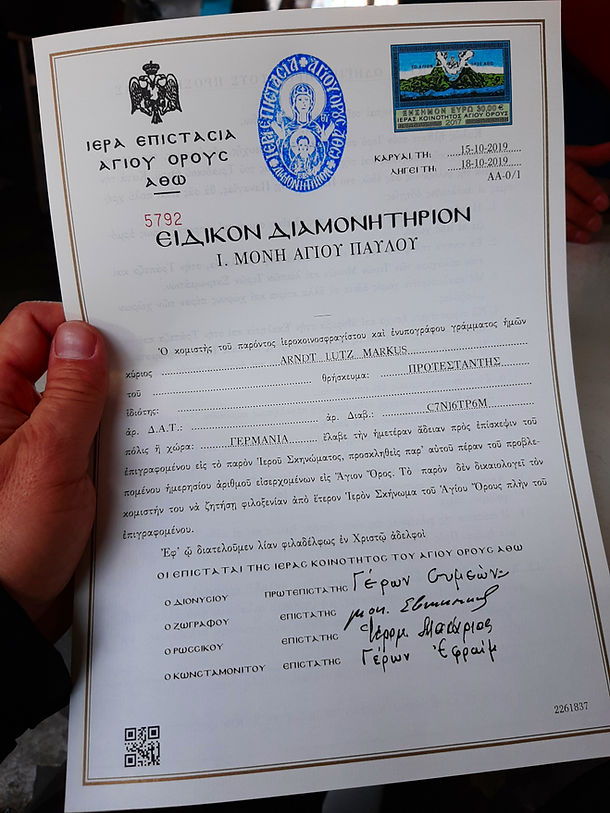 ΙΕΡΑ ΕΠΙΣΤΑΣΙΑ
ΑΓΙΟΥ ΟΡΟΥΣ
ΑΘΩ
ΙΕΡΑ ΕΠΙΣΤΑΣΙΑ ΑΓΙΟΥ ΟΡΟΥΣ ΑΘΩ
ΔΙΑΜΟΝΗΤΗΡΙΟΝ
ΕΝΣΗΜΟΝ ΕΥΡΩ 30,00 €
ΙΕΡΑΣ ΚΟΙΝΟΤΗΤΟΣ ΑΓΙΟΥ ΟΡΟΥΣ
2017
ΚΑΡΥΑΙ ΤΗ: 15-10-2019
ΛΗΓΕΙ ΤΗ: 18-10-2019
ΑΑ-0/1
5792
ΕΙΔΙΚΟΝ ΔΙΑΜΟΝΗΤΗΡΙΟΝ
Ι. ΜΟΝΗ ΑΓΙΟΥ ΠΑΥΛΟΥ
Ὁ κομιστὴς τοῦ παρόντος ἱεροκοινοσφραγίστου καὶ ἐνυπογράφου γράμματος ἡμῶν
κύριος ARNDT LUTZ MARKUS
τοῦ θρήσκευμα: ΠΡΟΤΕΣΤΑΝΤΗΣ
ἰδιότης:
ἀρ. Δ.Α.Τ.: ἀρ. Διαβ.: C7NJ6TP6M
πόλις ἢ χώρα: ΓΕΡΜΑΝΙΑ ἔλαβε τὴν ἡμετέραν ἄδειαν πρὸς ἐπίσκεψιν τοῦ
ἐπιγραφομένου εἰς τὸ παρὸν Ἱεροῦ Σκηνώματος, προσκληθεὶς παρ' αὐτοῦ πέραν τοῦ προβλε-
πομένου ἡμερησίου ἀριθμοῦ εἰσερχομένων εἰς Ἅγιον Ὄρος. Τὸ παρὸν δὲν δικαιολογεῖ τὸν
κομιστήν του νὰ ζητήσῃ φιλοξενίαν ἀπὸ ἕτερον Ἱερὸν Σκήνωμα τοῦ Ἁγίου Ὄρους πλὴν τοῦ
ἐπιγραφομένου.
Ἐφ' ᾧ διατελοῦμεν λίαν φιλαδέλφως ἐν Χριστῷ ἀδελφοί
ΟΙ ΕΠΙΣΤΑΤΑΙ ΤΗΣ ΙΕΡΑΣ ΚΟΙΝΟΤΗΤΟΣ ΤΟΥ ΑΓΙΟΥ ΟΡΟΥΣ ΑΘΩ
Ο ΔΙΟΝΥΣΙΟΥ ΠΡΩΤΕΠΙΣΤΑΤΗΣ Γέρων Συμεών
Ο ΖΩΓΡΑΦΟΥ ΕΠΙΣΤΑΤΗΣ μον.
Ο ΡΩΣΣΙΚΟΥ ΕΠΙΣΤΑΤΗΣ Ἱερομ. Μακάριος
Ο ΚΩΝΣΤΑΜΟΝΙΤΟΥ ΕΠΙΣΤΑΤΗΣ Γέρων Ἐφραίμ
2261837